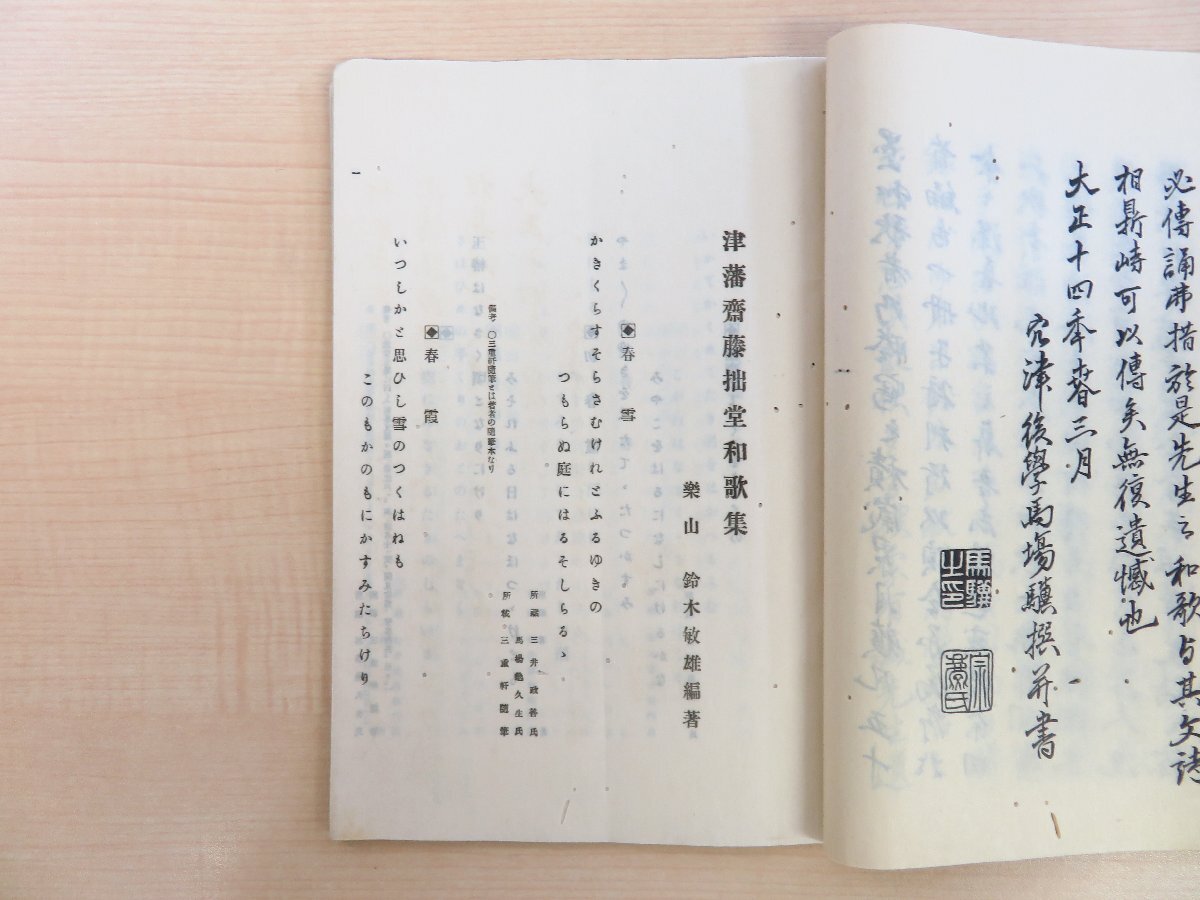 必傳誦弗措於是先生之和歌与其文詩
相鼎峙可以傳矣無復遺憾也
大正十四年春三月
後學馬場驥撰并書
津藩齋藤拙堂和歌集
樂山 鈴木敏雄編著
◆春雪
かきくらすそらさむけれとふるゆきの
つもらぬ庭にはるそしらるゝ
所藏 三井政善氏
馬場龜久生氏
所載。三重軒隨筆
備考 〇三重軒隨筆とは著者の隨筆本なり
◆春霞
いつしかと思ひし雪のつくはねも
このもかのもにかすみたちけり
一